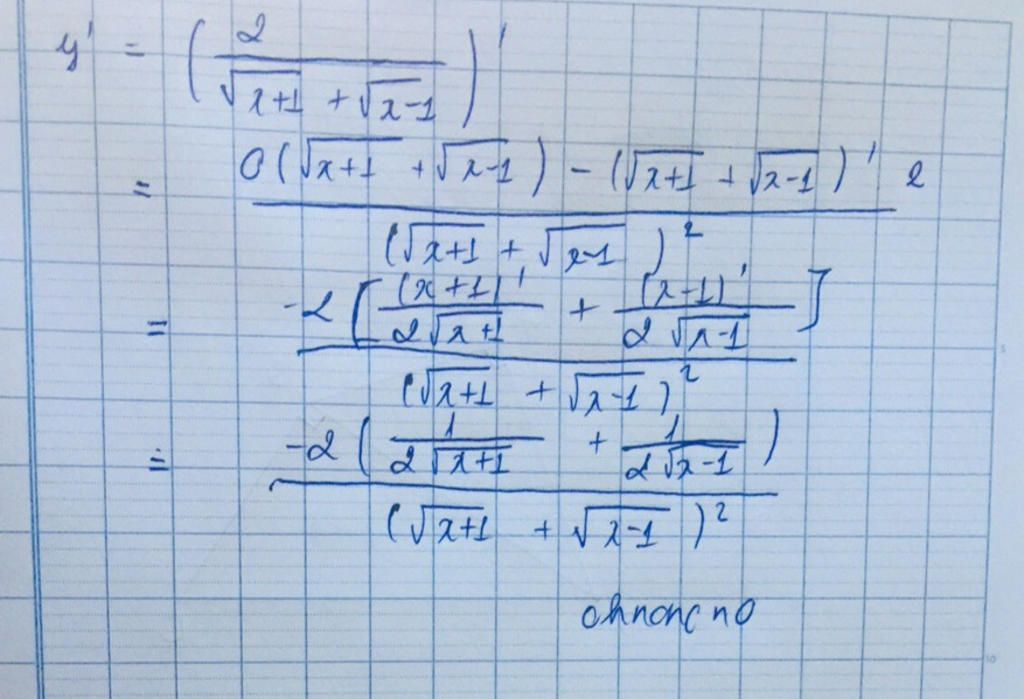 y' = (2 / (√(x+1) + √(x-1)))'
= (0(√(x+1) + √(x-1)) - (√(x+1) + √(x-1))' 2) / (√(x+1) + √(x-1))²
= (-2[(x+1)' / (2√(x+1)) + (x-1)' / (2√(x-1))]) / (√(x+1) + √(x-1))²
= (-2(1 / (2√(x+1)) + 1 / (2√(x-1)))) / (√(x+1) + √(x-1))²
ohnonc no